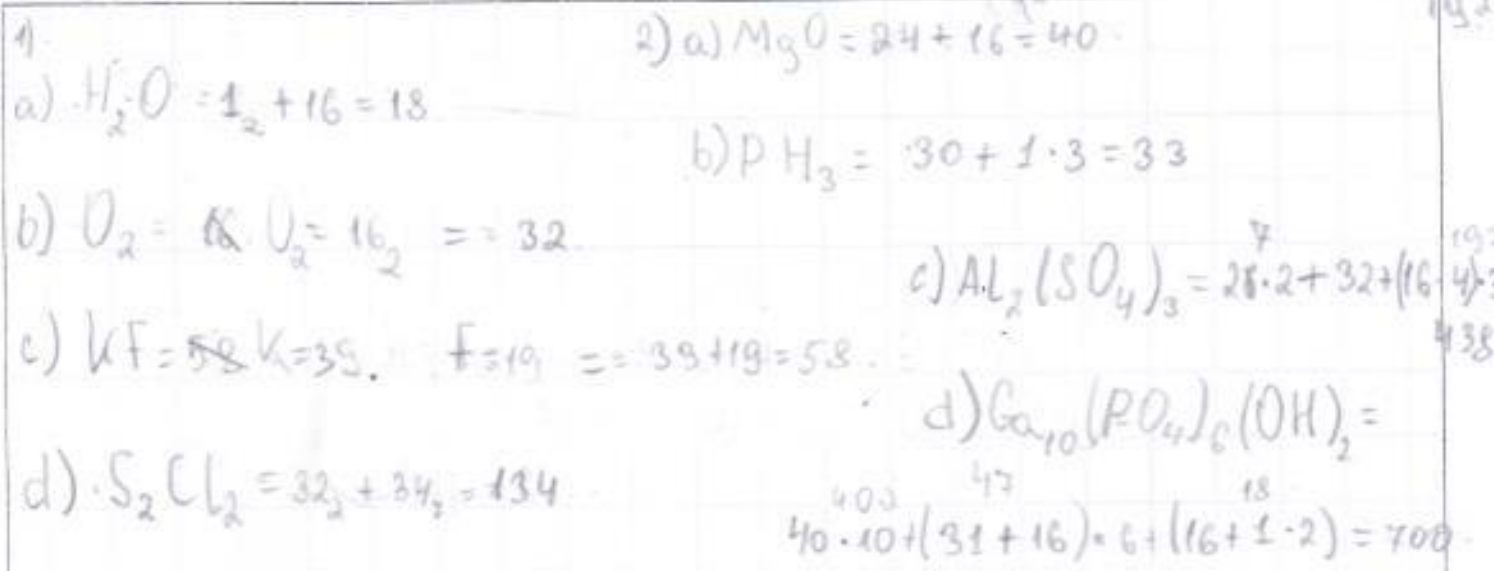 1)
a) H₂O = 1₂ + 16 = 18
b) O₂ = O₂ = 16₂ = = 32
c) KF = K=39. F=19 = = 39+19=58.
d) S₂Cl₂ = 32₂ + 34₂ = 134
2) a) MgO = 24 + 16 = 40
b) PH₃ = 30 + 1·3 = 33
7
c) Al₂(SO₄)₃ = 28·2 + 32 + (16·4)·3
438
d) Ca₁₀(PO₄)₆(OH)₂ =
400 47 18
40·10 + (31 + 16)·6 + (16 + 1·2) = 700